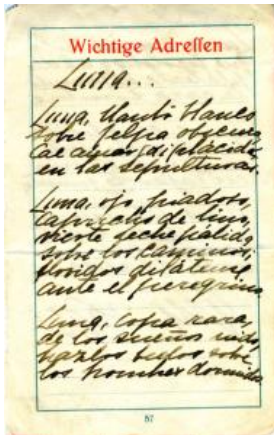 Wichtige Adreſſen
Luna...
Luna, llanto blanco
sobre felpa obscura
cae
en las sepulturas.
Luna, ojo, piadoso,
de lino,
vierte leche pálida
sobre los caminos;
ante el peregrino.
Luna, copa rara,
de los sueños nido,
hazlos sobre
los hombres dormidos.
87